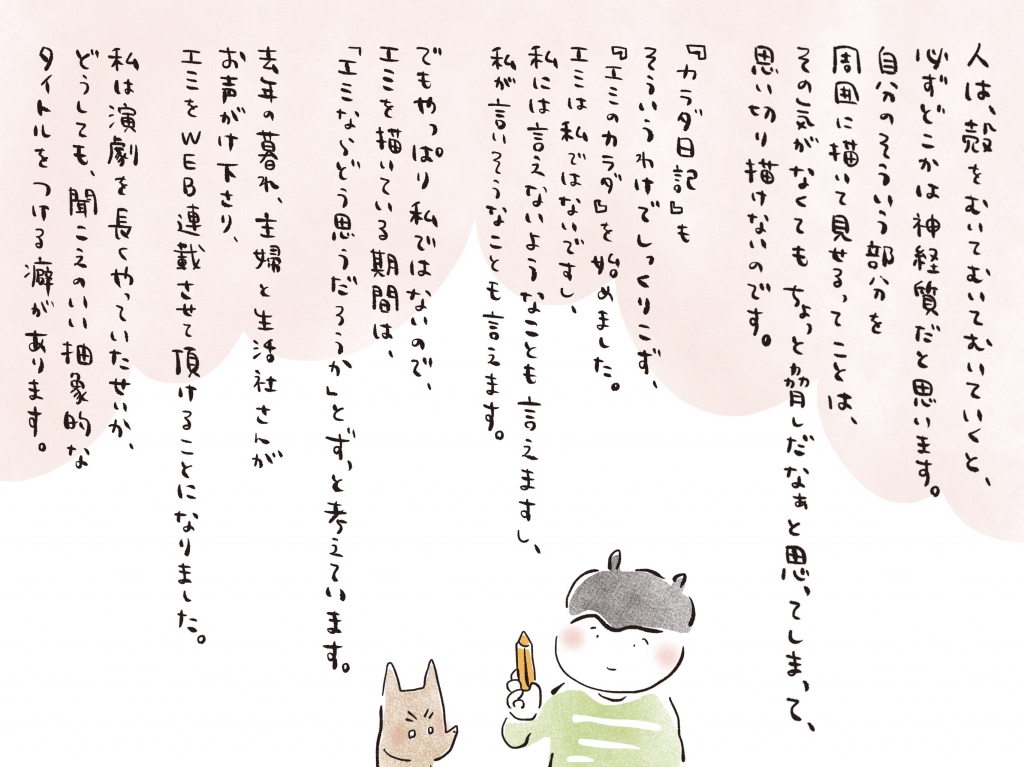 人は、殻をむいてむいてむいていくと、
必ずどこかは神経質だと思います。
自分のそういう部分を
周囲に描いて見せるってことは、
その気がなくてもちょっと脅しだなぁと思ってしまって、
思い切り描けないのです。
『カラダ日記』も
そういうわけでしっくりこず、
『エミのカラダ』を始めました。
エミは私ではないですし、
私には言えないようなことも言えますし、
私が言いそうなことも言えます。
でもやっぱり私ではないので、
エミを描いている期間は、
「エミならどう思うだろうか」とずっと考えています。
去年の暮れ、主婦と生活社さんが
お声がけ下さり、
エミをWEB連載させて頂けることになりました。
私は演劇を長くやっていたせいか、
どうしても、聞こえのいい抽象的な
タイトルをつける癖があります。